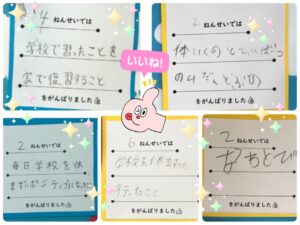 4 ねんせいでは
学校で習ったことを
家で復習すること
をがんばりました
いいね!
2 ねんせいでは
体いくの
をがんばりました
2 ねんせいでは
毎日学校を休
まず
をがんばりました
6 ねんせいでは
学校を休まず
行ったこと
をがんばりました
2 ねんせいでは
なわとび
をがんばりました